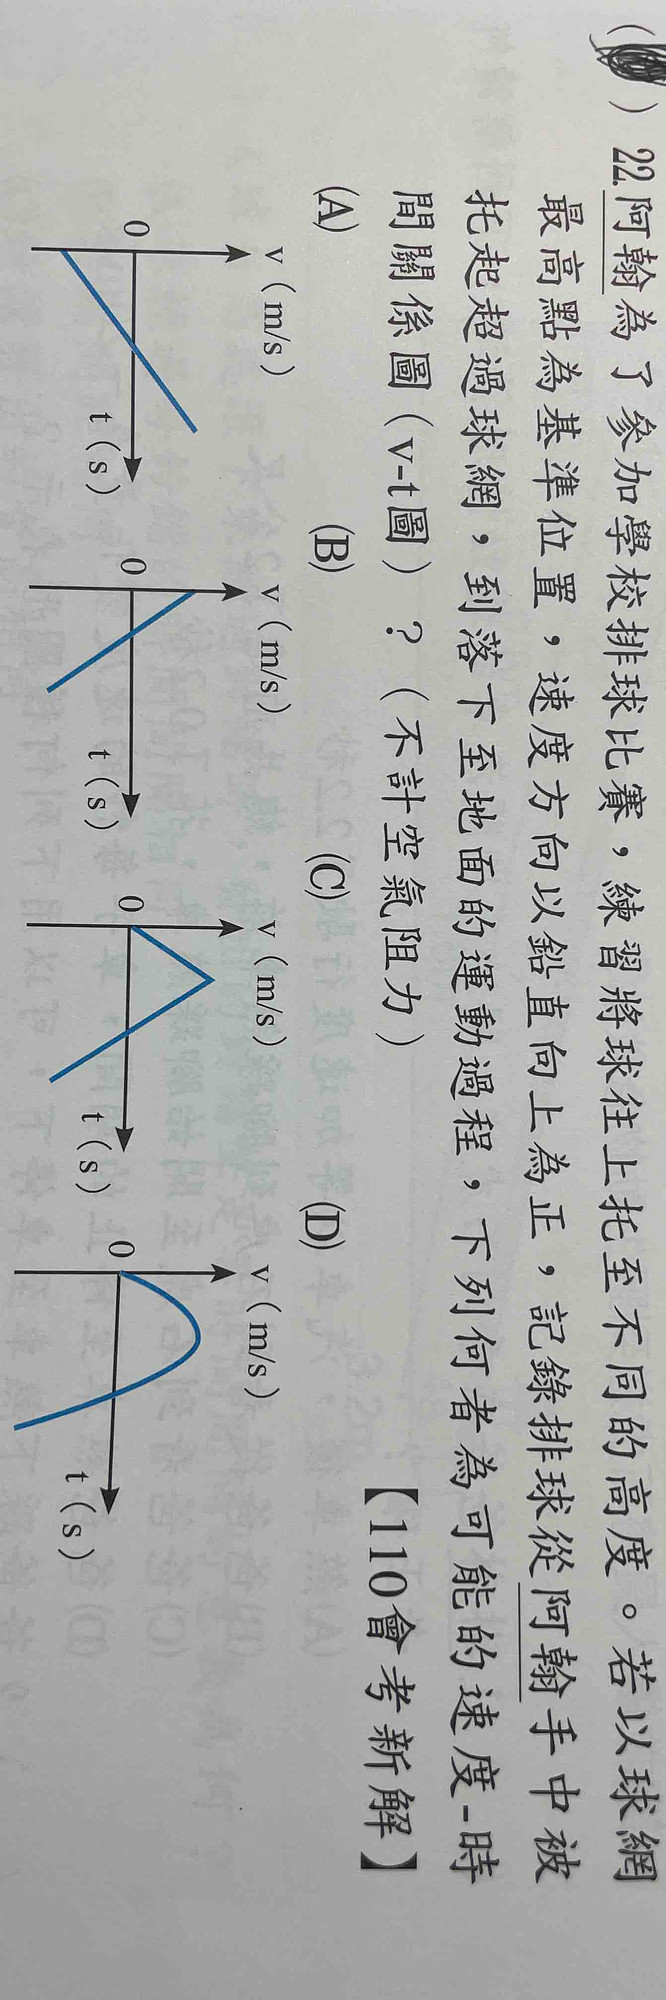 (　) 22.阿翰為了參加學校排球比賽，練習將球往上托至不同的高度。若以球網
最高點為基準位置，速度方向以鉛直向上為正，記錄排球從阿翰手中被
托起超過球網，到落下至地面的運動過程，下列何者為可能的速度-時
間關係圖（v-t圖）？（不計空氣阻力）
【110會考新解】
(A)
(B)
(C)
(D)
v（m/s）
v（m/s）
v（m/s）
v（m/s）
0
0
0
0
t（s）
t（s）
t（s）
t（s）